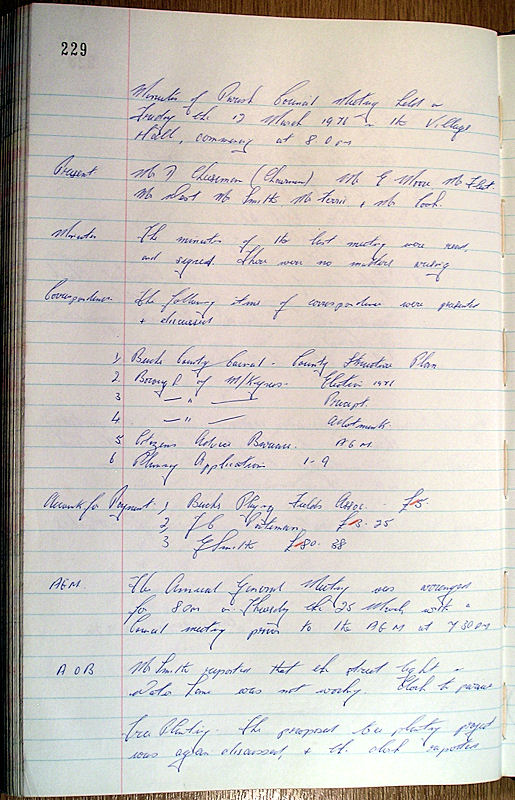 229
Minutes of Parish Council Meeting held on
the 12 March 1976 in the Village
Hall, commencing at 8 0 pm
Present Mr Cheeseman (Chairman) Mr G Moore Mr
Mr Mr Smith Mr + Mr Cook.
Minutes The minutes of the last meeting were read,
and signed. There were no matters
Correspondence The following items of correspondence were presented
+ discussed
1, Bucks County Council - County Structure Plan
2. Boro of M/Keynes. Election 1976
3 — " — Precept.
4 — " — Allotments.
5 Citizens Advice Bureau. AGM
6 Planning Applications 1-9
Accounts for Payment 1, Bucks Playing Fields Assoc. £5.
2, £13. 25
3 G Smith £80. 38
AGM. The Annual General Meeting was arranged
for 8 0m on Thursday the 25 March, with a
Council meeting prior to the AGM at 7 30 pm
AOB Mr Smith reported that the street light in
Lane was not working. Clerk to
Tree Planting. The proposed tree planting project
was again discussed, + the clerk reported